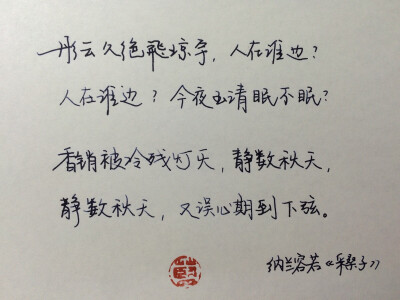 彤云久绝飛琼字，人在谁边？
人在谁边？今夜玉清眠不眠？
香销被冷残灯灭，静数秋天，
静数秋天，又误心期到下弦。
纳兰容若《采桑子》